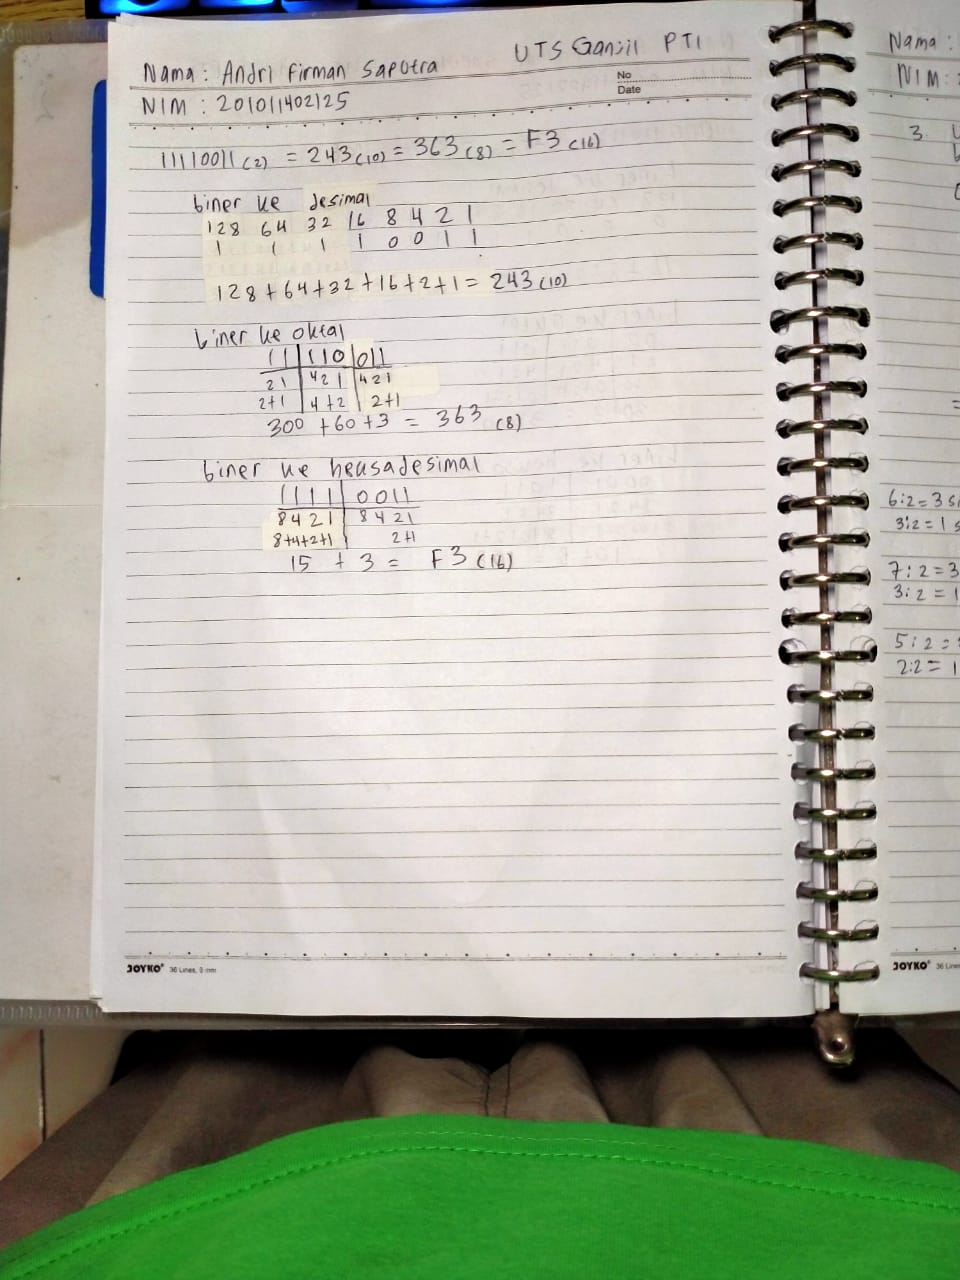 UTS Ganjil PTI
Nama : Andri Firman Saputra
No
Date
NIM : 201011402125
11110011 (2) = 243 (10) = 363 (8) = F3 (16)
biner ke desimal
128 64 32 16 8 4 2 1
1 1 1 1 0 0 1 1
128+64+32+16+2+1 = 243 (10)
biner ke oktal
11 | 110 | 011
21 | 421 | 421
2+1 | 4+2 | 2+1
300 + 60 + 3 = 363 (8)
biner ke heksadesimal
1111 | 0011
8421 | 8421
8+4+2+1 | 2+1
15 + 3 = F3 (16)
JOYKO 36 Lines, 9 mm
Nama :
NIM :
3.
6:2=3
3:2=1
7:2=3
3:2=1
5:2=
2:2=1
JOYKO 36 Lines